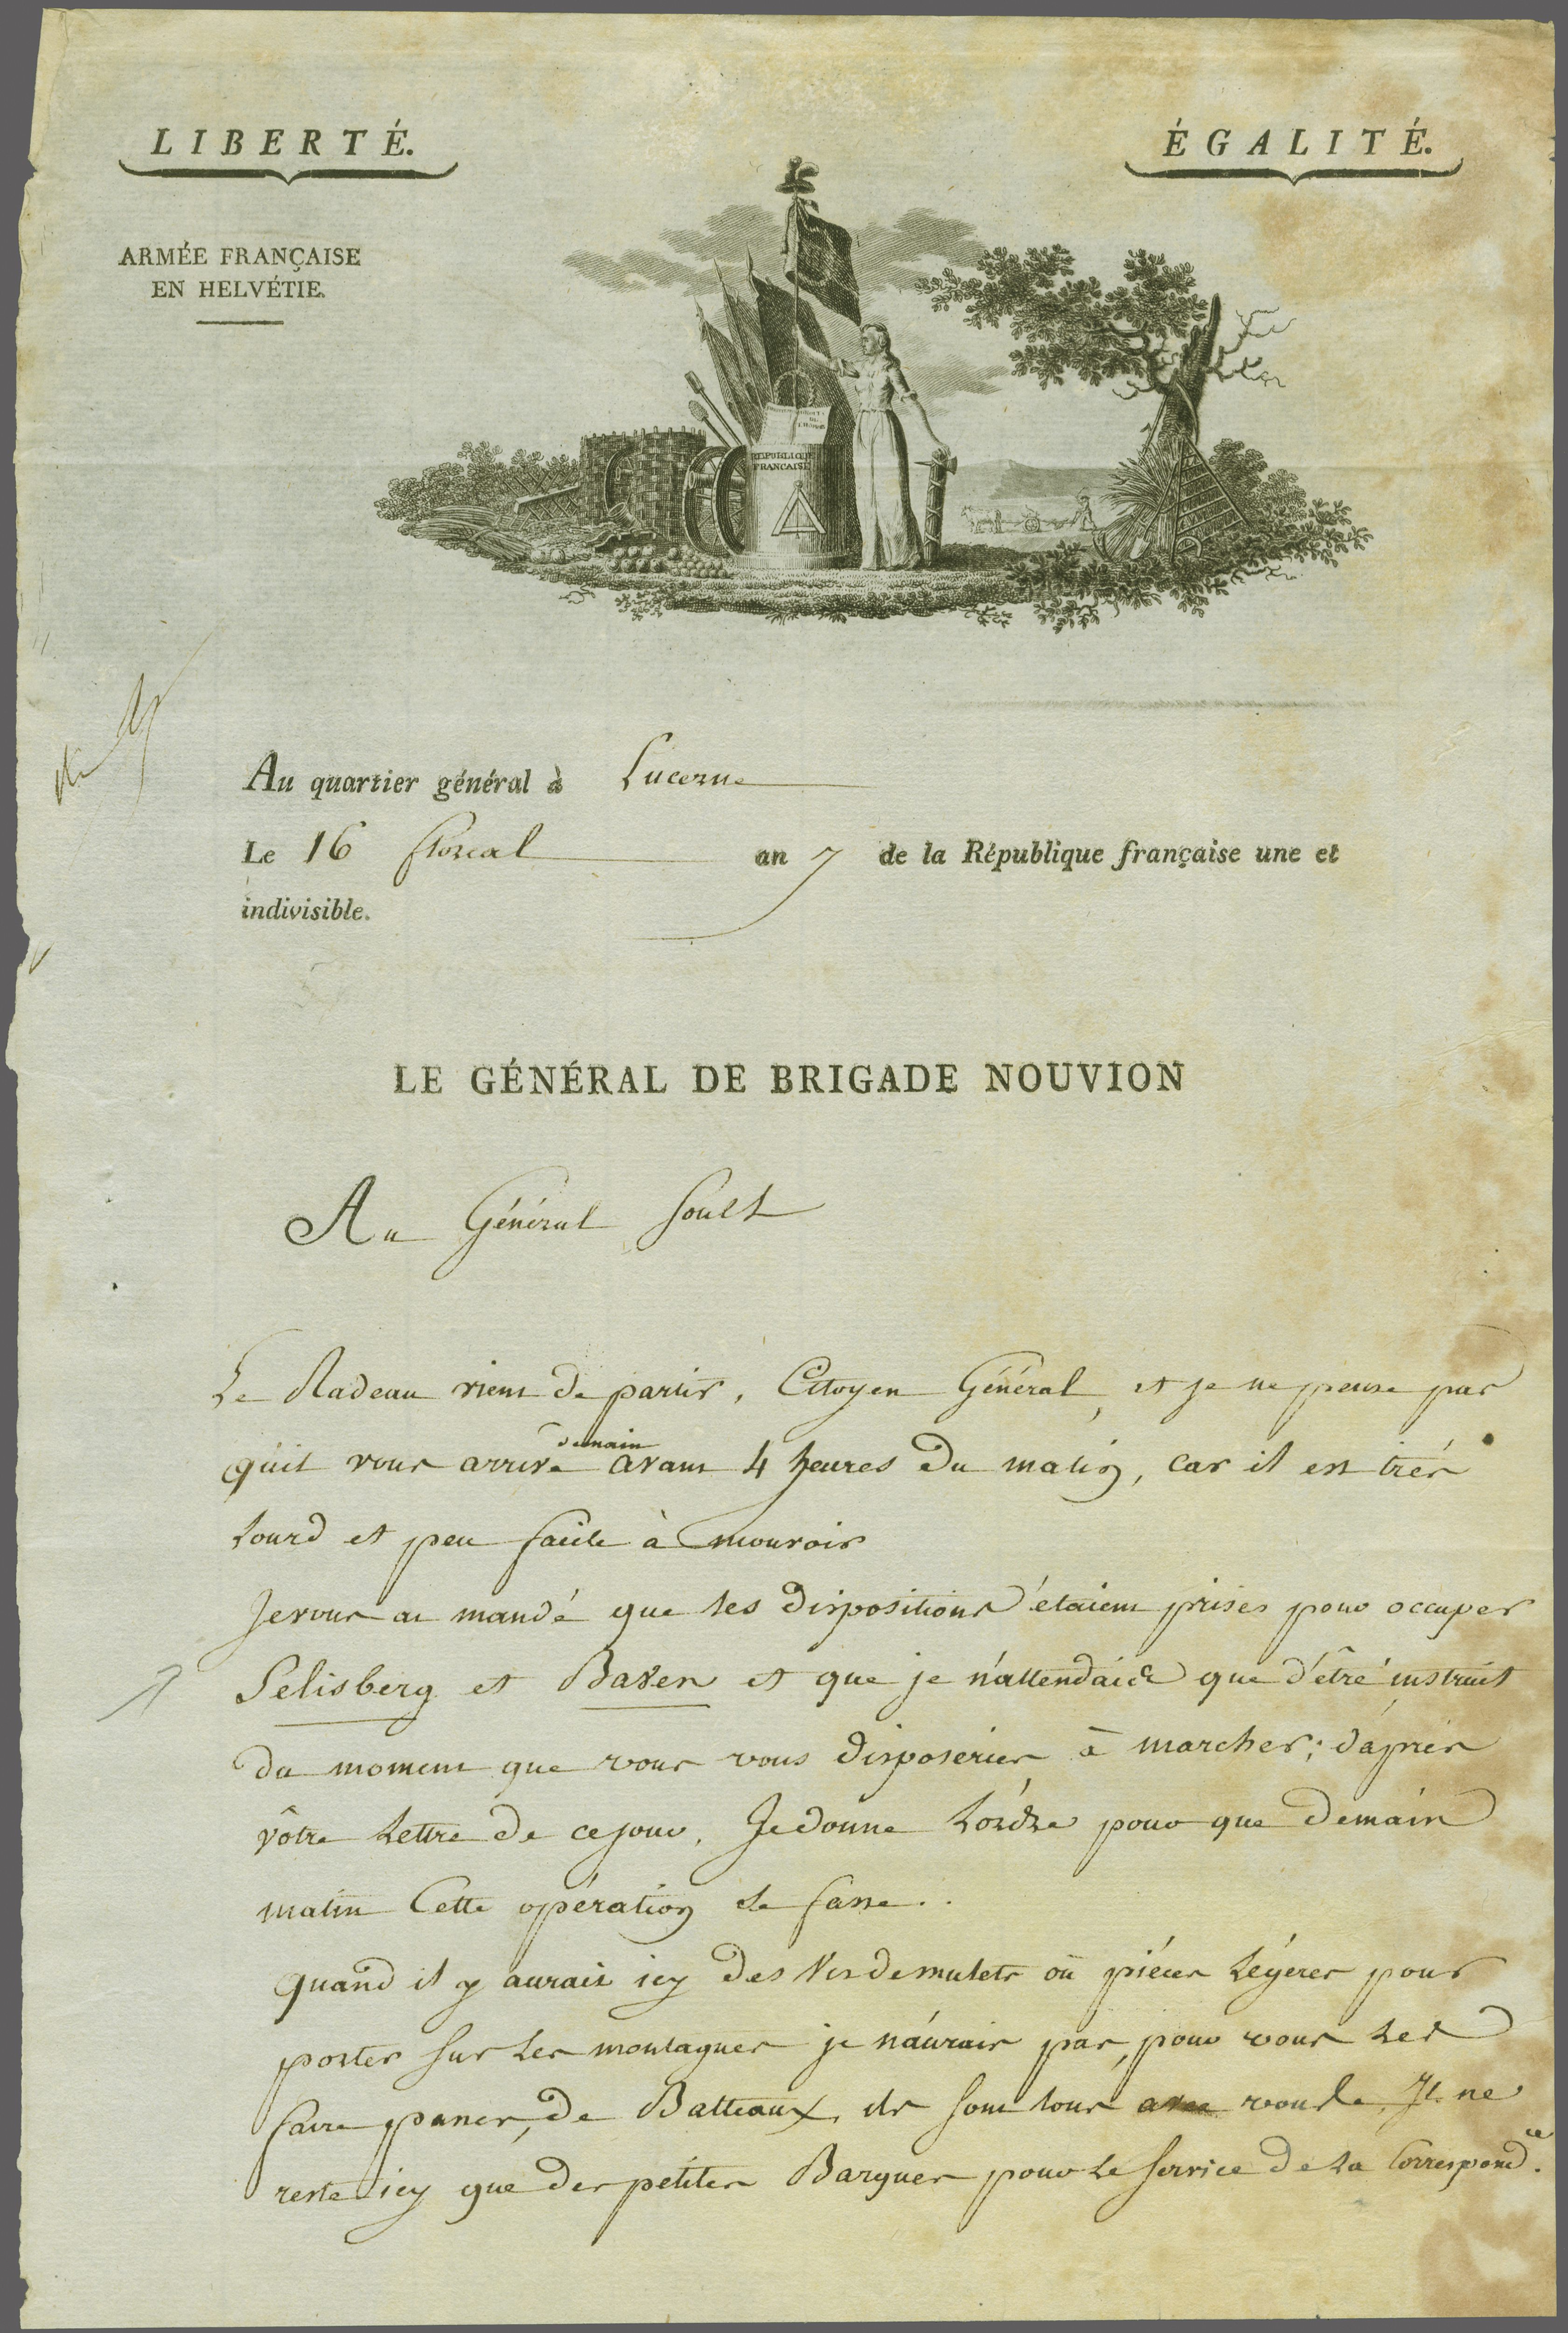 LIBERTÉ.
ÉGALITÉ.
ARMÉE FRANÇAISE
EN HELVÉTIE.
DROITS
DE
L'HOMME
RÉPUBLIQUE
FRANCAISE
Au quartier général à Lucerne
Le 16 floreal an 7 de la République française une et
indivisible.
LE GÉNÉRAL DE BRIGADE NOUVION
Au Général Soult
Le Radeau vient de partir, Citoyen Général, et je ne pense pas
qu'il vous arrive demain avant 4 heures du matin, car il est trés
lourd et peu facile à mouvoir
Je vous ai mandé que les dispositions étaient prises pour occuper
Selisberg et Baven et que je n'attendais que d'être instruit
du moment que vous vous disposeriez à marcher; d'après
vôtre lettre de ce jour, Je donne l'ordre pour que demain
matin Cette opération se fasse..
quand il y aurait icy des de mulets où piéces légeres pour
porter sur les montagnes je n'aurais pas, pour vous les
faire passer, de Batteaux, ils sont tous avec vous. Il ne
reste icy que des petites Barques pour le service de la Correspond.ce